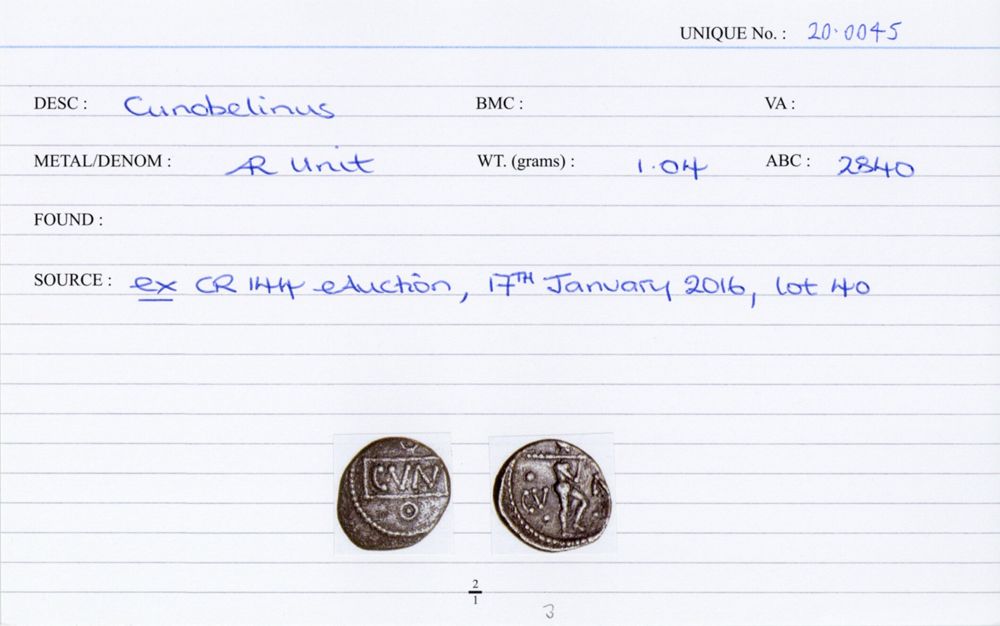 UNIQUE No. : 20.0045
DESC : Cunobelinus BMC : VA :
METAL/DENOM : AR Unit WT. (grams) : 1.04 ABC : 2840
FOUND :
SOURCE : ex CR 144 eAuction, 17TH January 2016, lot 40
CVN
CV
2
1
3